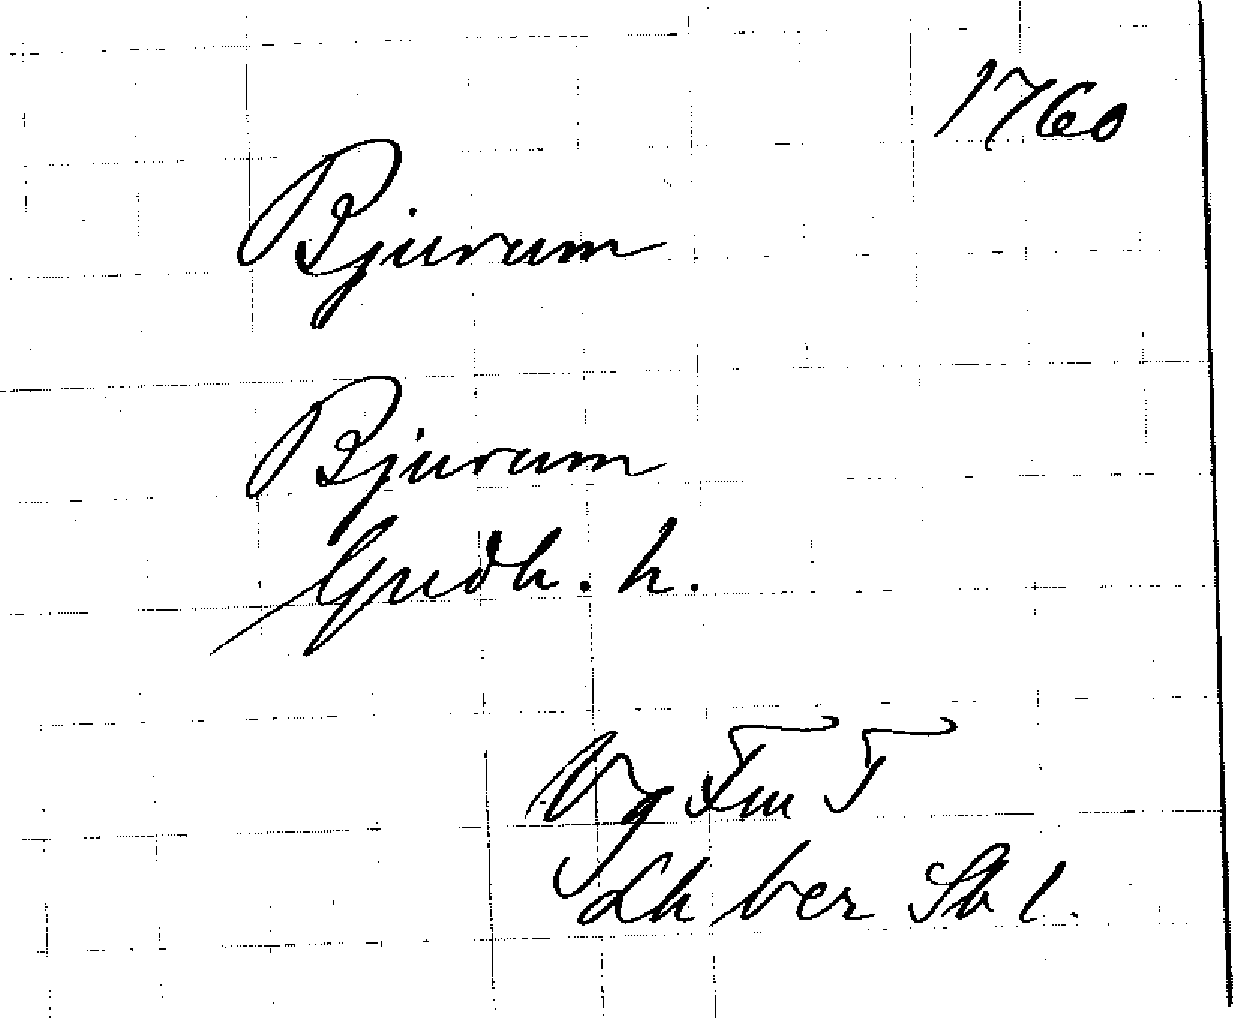 1760
Bjurum
Bjurum
Gudh. h.
Vg Fm T
Lh ber Sb 1.